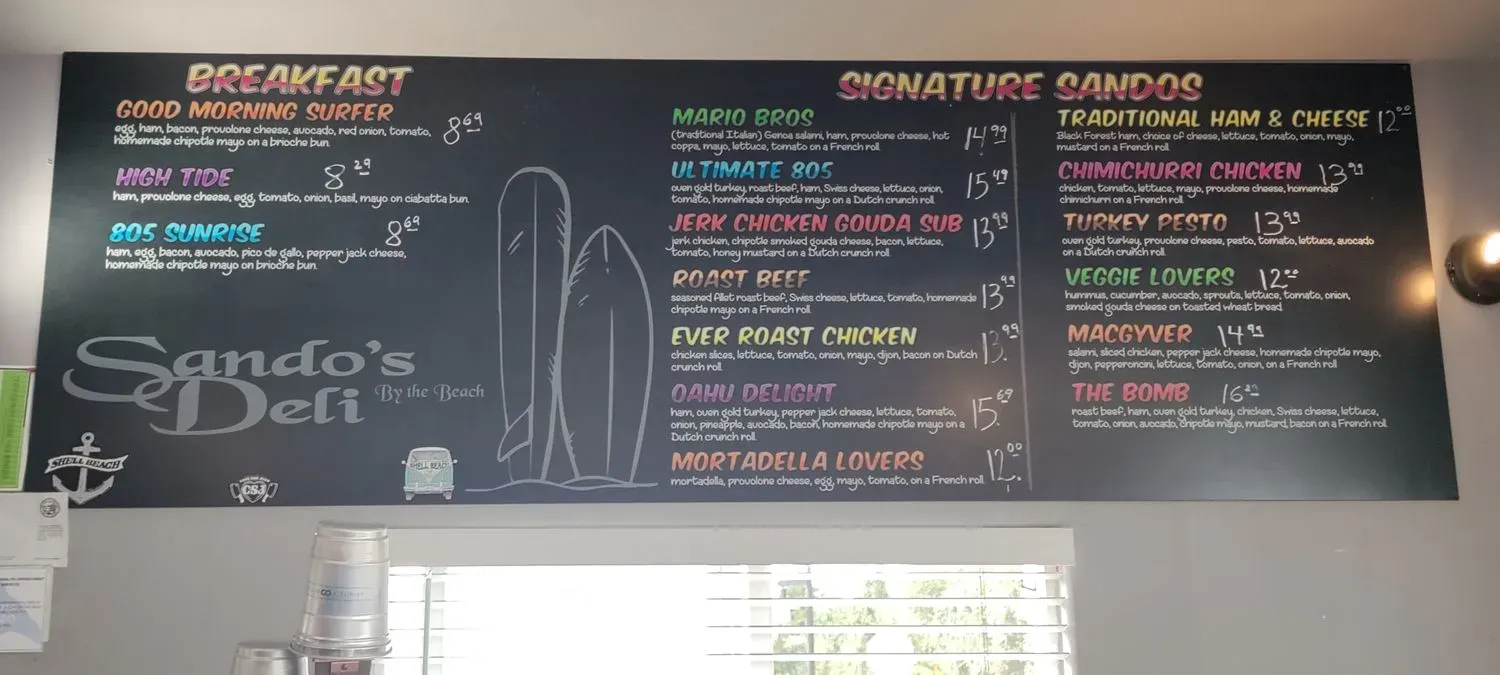 BREAKFAST
GOOD MORNING SURFER 8 69
egg, ham, bacon, provolone cheese, avocado, red onion, tomato,
homemade chipotle mayo on a brioche bun.
HIGH TIDE 8 29
ham, provolone cheese, egg, tomato, onion, basil, mayo on ciabatta bun.
805 SUNRISE 8 69
ham, egg, bacon, avocado, pico de gallo, pepper jack cheese,
homemade chipotle mayo on brioche bun.
Sando's
Deli By the Beach
SHELL BEACH
CSJ
SHELL BEACH
SIGNATURE SANDOS
MARIO BROS 14 99
(traditional Italian) Genoa salami, ham, provolone cheese, hot
coppa, mayo, lettuce, tomato on a French roll.
ULTIMATE 805 15 49
oven gold turkey, roast beef, ham, Swiss cheese, lettuce, onion,
tomato, homemade chipotle mayo on a Dutch crunch roll.
JERK CHICKEN GOUDA SUB 13 99
jerk chicken, chipotle smoked gouda cheese, bacon, lettuce,
tomato, honey mustard on a Dutch crunch roll.
ROAST BEEF 13 99
seasoned fillet roast beef, Swiss cheese, lettuce, tomato, homemade
chipotle mayo on a French roll.
EVER ROAST CHICKEN 13. 99
chicken slices, lettuce, tomato, onion, mayo, dijon, bacon on Dutch
crunch roll.
OAHU DELIGHT 15. 69
ham, oven gold turkey, pepper jack cheese, lettuce, tomato,
onion, pineapple, avocado, bacon, homemade chipotle mayo on a
Dutch crunch roll.
MORTADELLA LOVERS 12. 00
mortadella, provolone cheese, egg, mayo, tomato, on a French roll.
TRADITIONAL HAM & CHEESE 12 00
Black Forest ham, choice of cheese, lettuce, tomato, onion, mayo,
mustard on a French roll.
CHIMICHURRI CHICKEN 13 99
chicken, tomato, lettuce, mayo, provolone cheese, homemade
chimichurri on a French roll.
TURKEY PESTO 13 99
oven gold turkey, provolone cheese, pesto, tomato, lettuce, avocado
on a Dutch crunch roll.
VEGGIE LOVERS 12 00
hummus, cucumber, avocado, sprouts, lettuce, tomato, onion,
smoked gouda cheese on toasted wheat bread.
MACGYVER 14 99
salami, sliced chicken, pepper jack cheese, homemade chipotle mayo,
dijon, pepperoncini, lettuce, tomato, onion, on a French roll
THE BOMB 16
roast beef, ham, oven gold turkey, chicken, Swiss cheese, lettuce,
tomato, onion, avocado, chipotle mayo, mustard, bacon on a French roll.